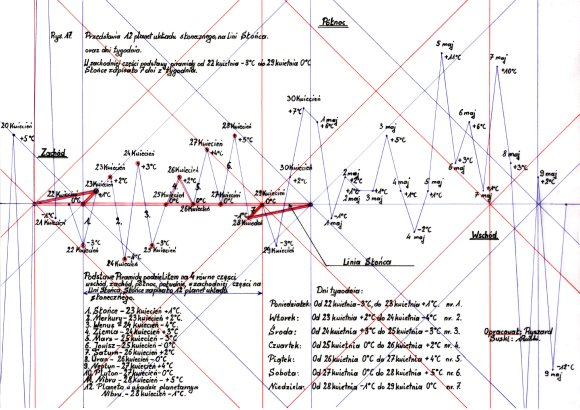 Północ
Rys. 17. Przedstawia 12 planet układu słonecznego, na Linii Słońca.
oraz dni tygodnia.
W zachodniej części podstawy piramidy od 22 kwietnia -3°C do 29 kwietnia 0°C
Słońce zapisało 7 dni z tygodnika.
20 Kwiecień
+5°C
Zachód
22 Kwiecień
-1°C
21 Kwiecień
0°C
23 Kwiecień
+1°C
1.
22 Kwiecień
-3°C
23 Kwiecień
+2°C
2.
24 Kwiecień
-4°C
24 Kwiecień
+3°C
3.
25 Kwiecień
-3°C
25 Kwiecień
0°C
26 Kwiecień
+2°C
4.
5.
0°C
26 Kwiecień
27 Kwiecień
+4°C
6.
27 Kwiecień
0°C
28 Kwiecień
+5°C
-1°C
28 Kwiecień
7.
29 Kwiecień
0°C
29 Kwiecień
-3°C
30 Kwiecień
+7°C
30 Kwiecień
+2°C
1 maj
+6°C
1 maj
-1°C
2 maj
+2°C
2 maj
+1°C
3 maj
+5°C
3 maj
4 maj
+1°C
4 maj
-2°C
5 maj
+1°C
5 maj
+11°C
6 maj
+6°C
6 maj
+3°C
7 maj
+10°C
7 maj
+1°C
8 maj
+3°C
9 maj
+2°C
9 maj
-12°C
Wschód
Linia Słońca
Podstawę Piramidy podzieliłem na 4 równe części
wschód, zachód, północ, południe, w zachodniej części na
Linii Słońca, Słońce zapisało 12 planet układu
słonecznego.
1. Słońce - 23 kwiecień +1°C
2. Merkury - 23 kwiecień +2°C
3. Wenus - 24 kwiecień -4°C
4. Ziemia - 24 kwiecień +3°C
5. Mars - 25 kwiecień -3°C
6. Jowisz - 25 kwiecień 0°C
7. Saturn - 26 kwiecień +2°C
8. Uran - 26 kwiecień 0°C
9. Neptun - 27 kwiecień +4°C
10. Pluton - 27 kwiecień 0°C
11. Nibiru - 28 kwiecień +5°C
12. Planeta w układzie planetarnym
Nibiru. - 28 kwiecień -1°C.
Dni tygodnia:
Poniedziałek: Od 22 kwietnia -3°C, do 23 kwietnia +1°C. nr. 1.
Wtorek: Od 23 kwietnia +2°C do 24 kwietnia -4°C nr. 2.
Środa: Od 24 kwietnia +3°C do 25 kwietnia -3°C nr. 3.
Czwartek: Od 25 kwietnia 0°C do 26 kwietnia +2°C nr. 4.
Piątek: Od 26 kwietnia 0°C do 27 kwietnia +4°C nr. 5.
Sobota: Od 27 kwietnia 0°C do 28 kwietnia +5°C nr. 6.
Niedziela: Od 28 kwietnia -1°C do 29 kwietnia 0°C nr. 7.
Opracował: Ryszard